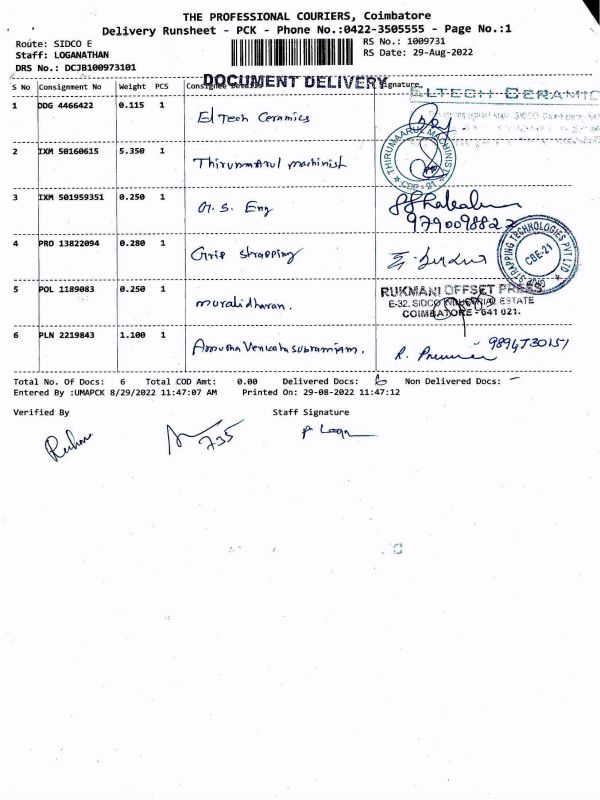 THE PROFESSIONAL COURIERS, Coimbatore
Delivery Runsheet - PCK - Phone No.:0422-3505555 - Page No.:1
Route: SIDCO E
RS No.: 1009731
Staff: LOGANATHAN
RS Date: 29-Aug-2022
DRS No.: DCJB100973101
DOCUMENT DELIVERY
S No Consignment No Weight PCS Consignee Details Signature
ELTECH CERAMIC
1 DDG 4466422 0.115 1 El Tech Ceramics
2 IXM 50160615 5.350 1 Thirummarul machinist
THIRUMAARUL MACHINIST
CBE-21
3 IXM 501959351 0.250 1 M. S. Eng
4 PRO 13822094 0.280 1 Grip Strapping
STRAPPING TECHNOLOGIES PVT LTD
CBE-21
5 POL 1189083 0.250 1 muralidharan.
RUKMANI OFFSET PRESS
E-32, SIDCO INDUSTRIAL ESTATE
COIMBATORE - 641 021.
6 PLN 2219843 1.100 1 Amutha Venkata Subramiam.
Total No. Of Docs: 6 Total COD Amt: 0.00 Delivered Docs: 6 Non Delivered Docs: -
Entered By :UMAPCK 8/29/2022 11:47:07 AM Printed On: 29-08-2022 11:47:12
Verified By Staff Signature
735
P Logn